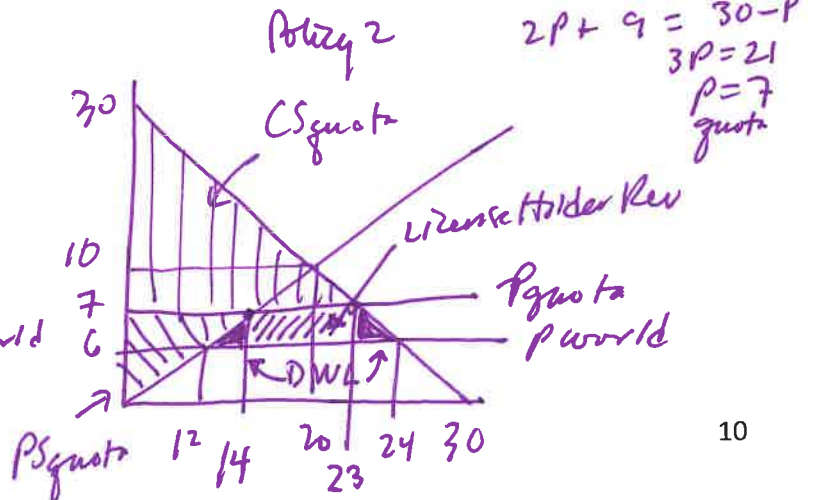 Policy 2
2P + 9 = 30-P
3P=21
P=7
quota
30
CSquota
License Holder Rev
10
7
Pquota
6
Pworld
rld
DWL
PSquota
12
14
20
23
24
30
10